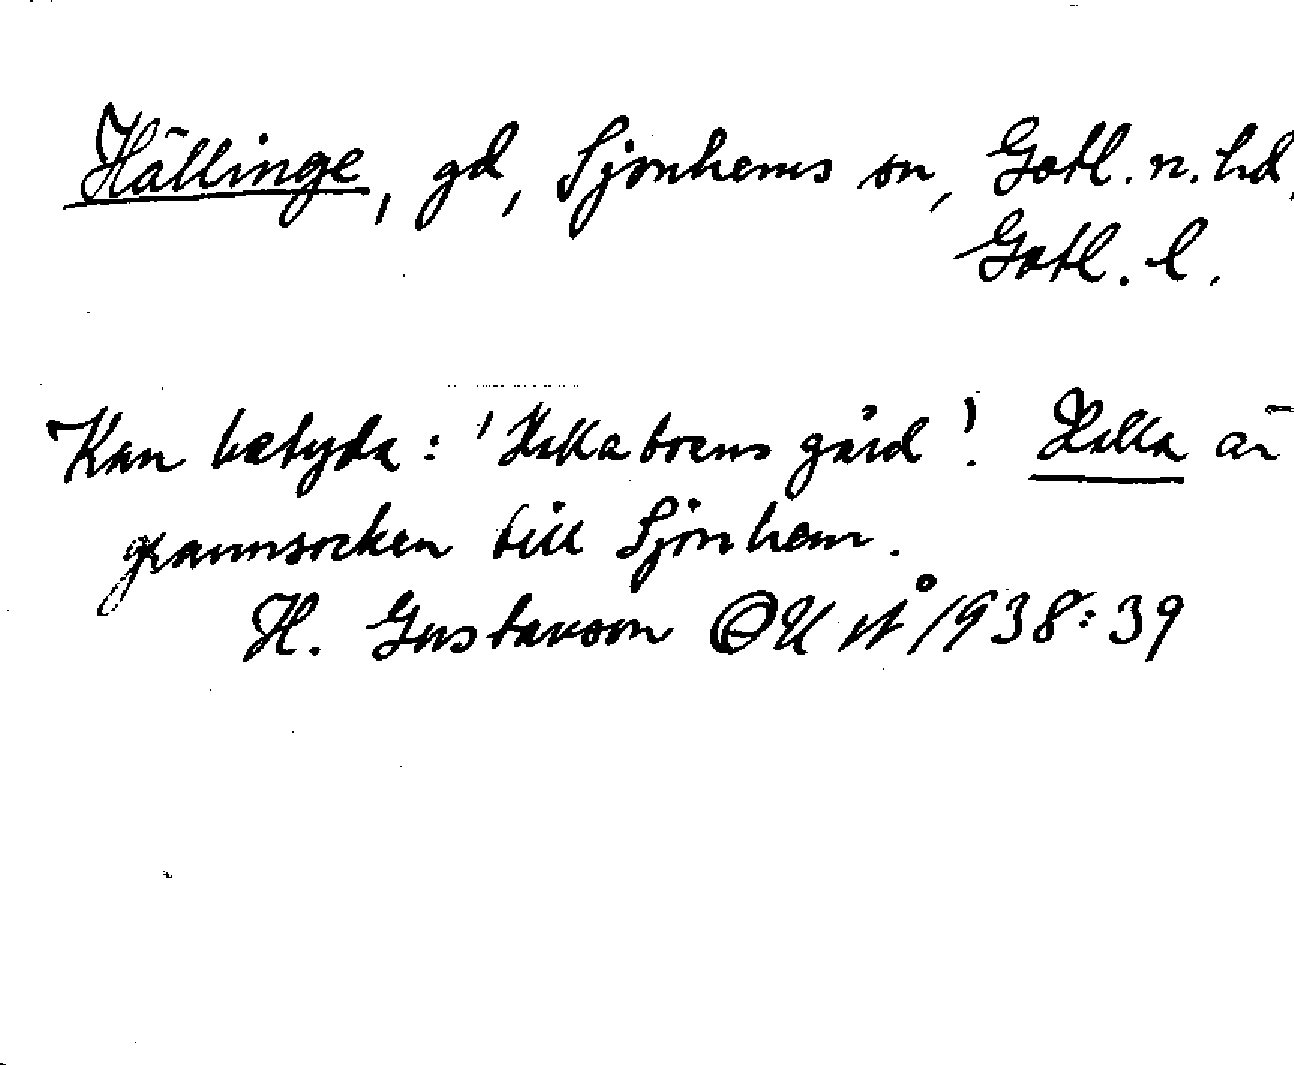 Hällinge, gd, Sjonhems sn, Gotl. n. hd,
Gotl. l.
Kan betyda: 'Hallabrens gård'. Halla är
grannsocken till Sjonhem.
H. Gustavson OUÅ 1938:39